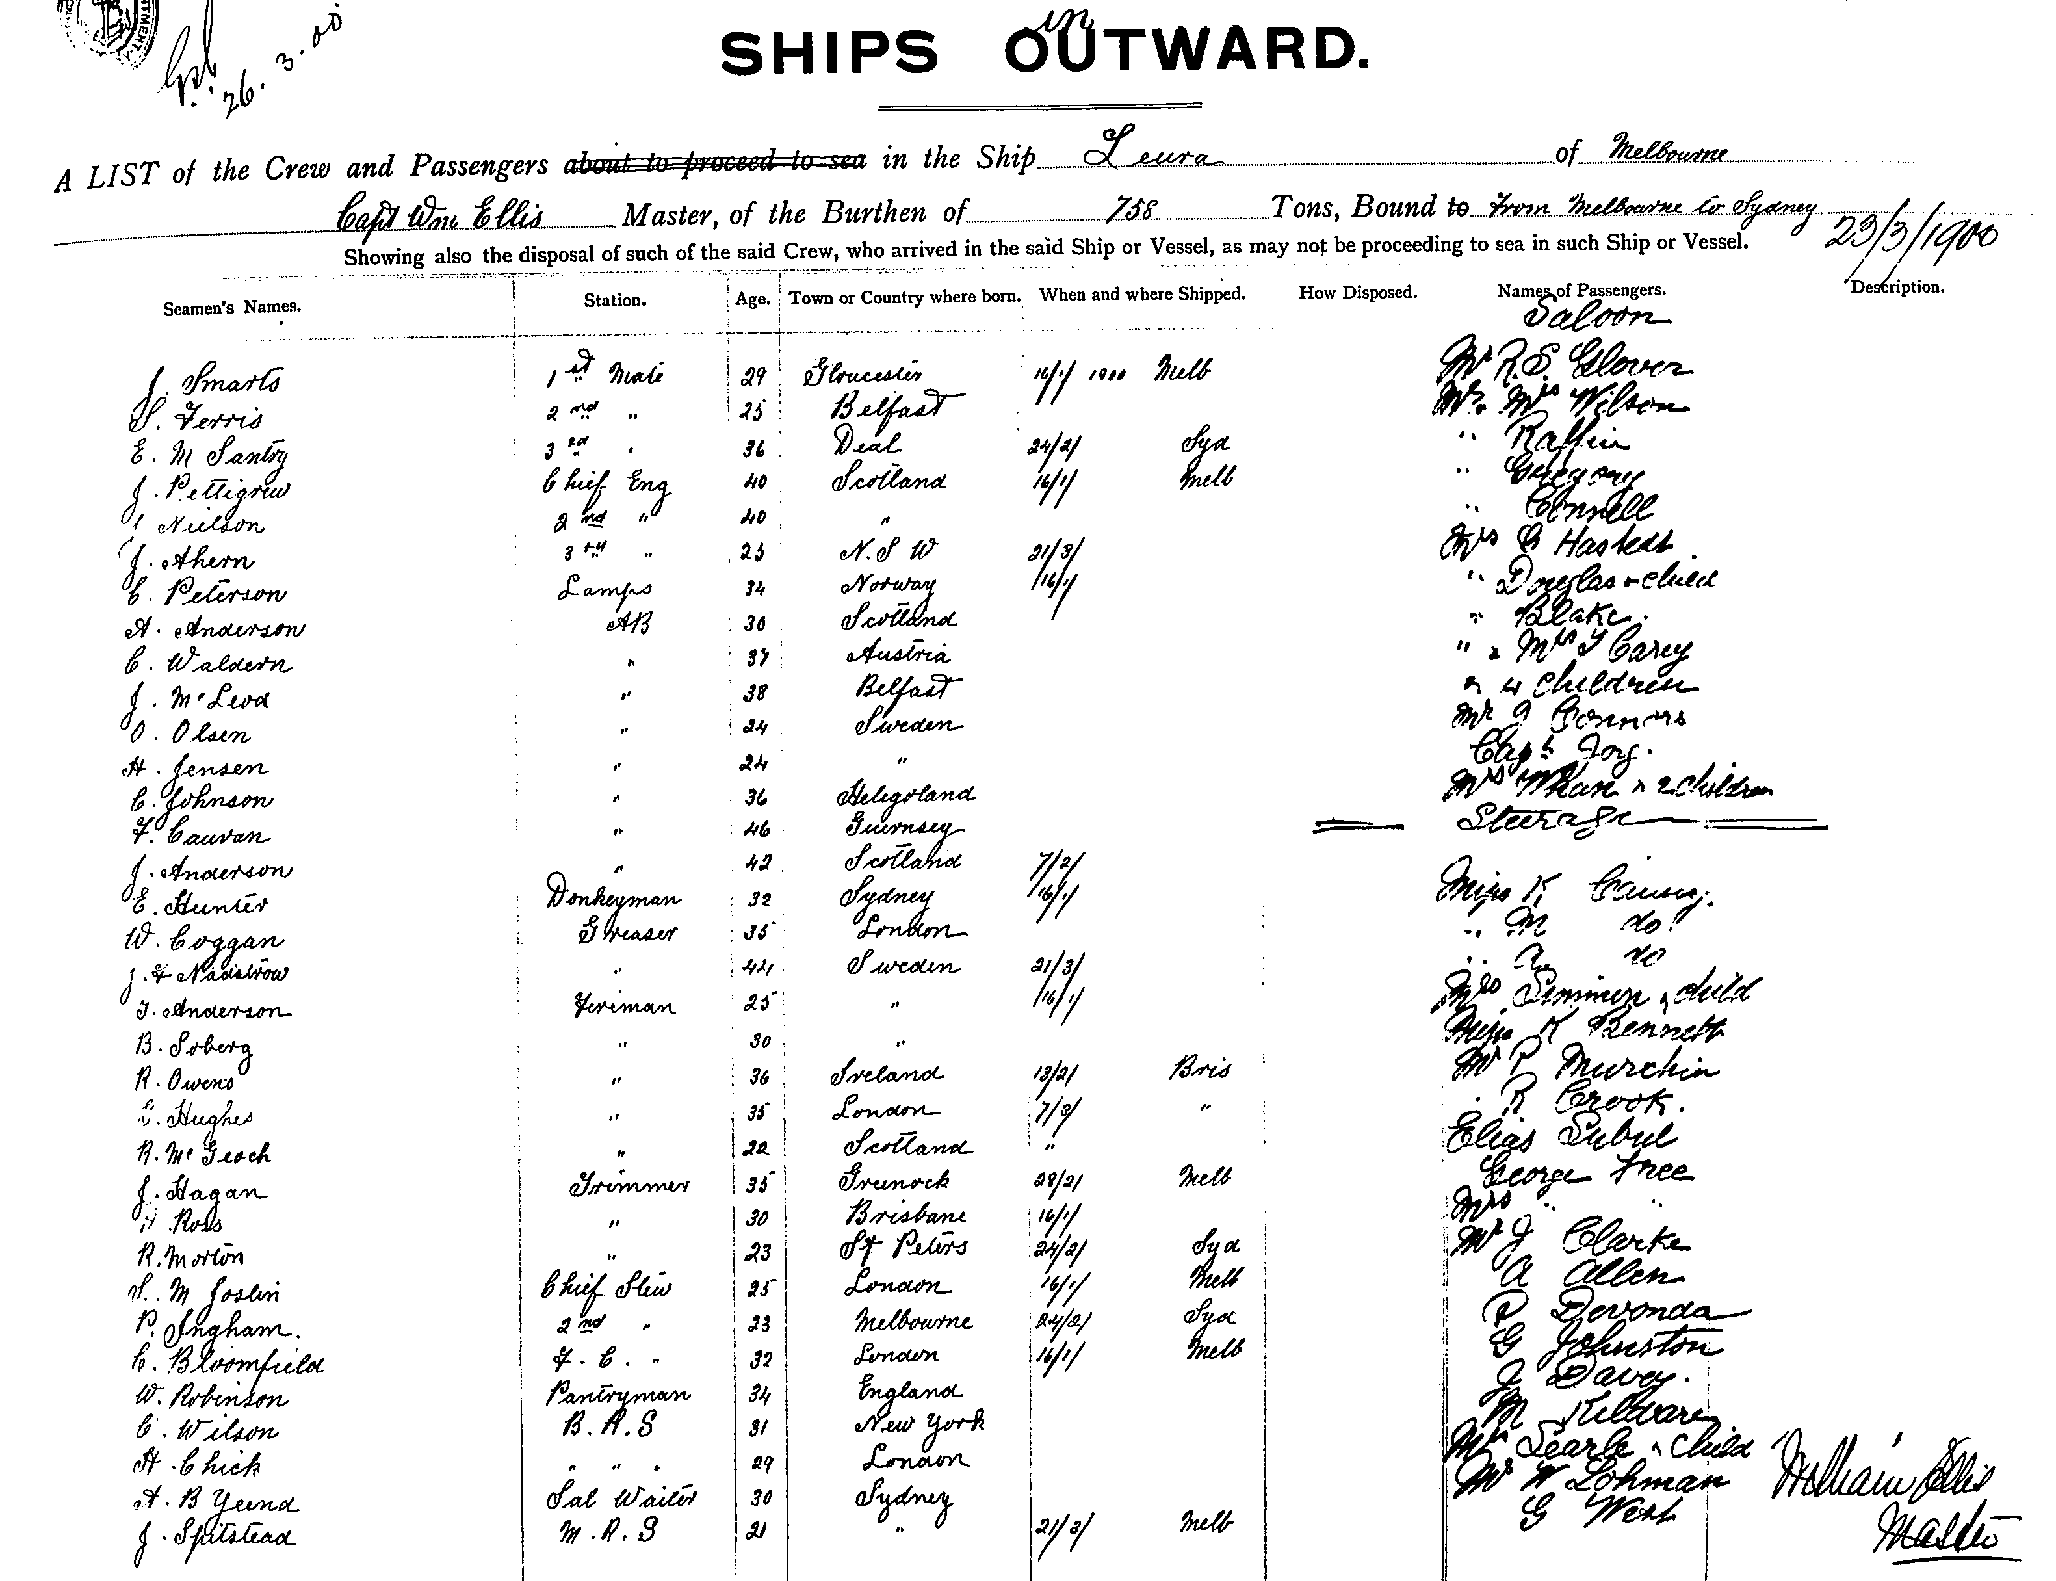 DEPARTMENT
26. 3. 00
in
SHIPS OUTWARD.
A LIST of the Crew and Passengers about to proceed to sea in the Ship Leura of Melbourne
Capt Wm Ellis Master, of the Burthen of 758 Tons, Bound to from Melbourne to Sydney
23/3/1900
Showing also the disposal of such of the said Crew, who arrived in the said Ship or Vessel, as may not be proceeding to sea in such Ship or Vessel.
Seamen's Names. Station. Age. Town or Country where born. When and where Shipped. How Disposed. Names of Passengers. Description.
Saloon
J. Smarts 1st Mate 29 Gloucester 16/1/1900 Melb Mr R. S. Glover
S. Ferris 2nd " 25 Belfast Mr & Mrs Wilson
E. M Santry 3rd " 36 Deal 24/2/ Syd " Raffin
J. Pettigrew Chief Eng 40 Scotland 16/1/ Melb " Gregory
Nielson 2nd " 40 " " Connell
J. Ahern 3rd " 25 N. S W 21/3/ Mrs C Hastedt
C. Peterson Lamps 34 Norway 16/1/ " Douglas & child
A. Anderson AB 30 Scotland " Blake.
C. Waldern " 37 Austria " & Mrs T Carey
J. McLeod " 38 Belfast & 4 children
O. Olsen " 24 Sweden Mr J Connors
H. Jensen " 24 " Capt Joy.
C. Johnson " 36 Heligoland Mrs Whan & 2 children
F. Cauvan " 46 Guernsey Steerage
J. Anderson " 42 Scotland 7/2/
E. Hunter Donkeyman 32 Sydney 16/1/ Miss K Causey.
W. Coggan Greaser 35 London " M do.
J. F Nadstrow " 44 Sweden 21/3/ " A do
T. Anderson Fireman 25 " 16/1/ Mrs Simmon & child
B. Soberg " 30 " Miss K Bennett
R. Owens " 36 Ireland 13/2/ Bris Mr P Murchin
C. Hughes " 35 London 7/3/ " R Crook.
R. McGeoch " 22 Scotland " Elias Subul
J. Hagan Trimmer 35 Greenock 28/2/ Melb George Free
H Ross " 30 Brisbane 16/1/ Mrs " "
R. Morton " 23 St Peters 24/2/ Syd Mr J Clarke
S. M Joslin Chief Stew 25 London 16/1/ Melb A Allen
P. Ingham. 2nd " 23 Melbourne 24/2/ Syd P Devonda
C. Bloomfield F. C. " 32 London 16/1/ Melb G Johnston
W. Robinson Pantryman 34 England J Davey.
C. Wilson B. R. S 31 New York M Kildare
H. Chick " " " 29 London Mrs Searle & child
A. B Yeend Sal Waiter 30 Sydney Mr W Lohman
J. Spitstead M. R. S 21 " 21/3/ Melb G West
William Ellis
Master